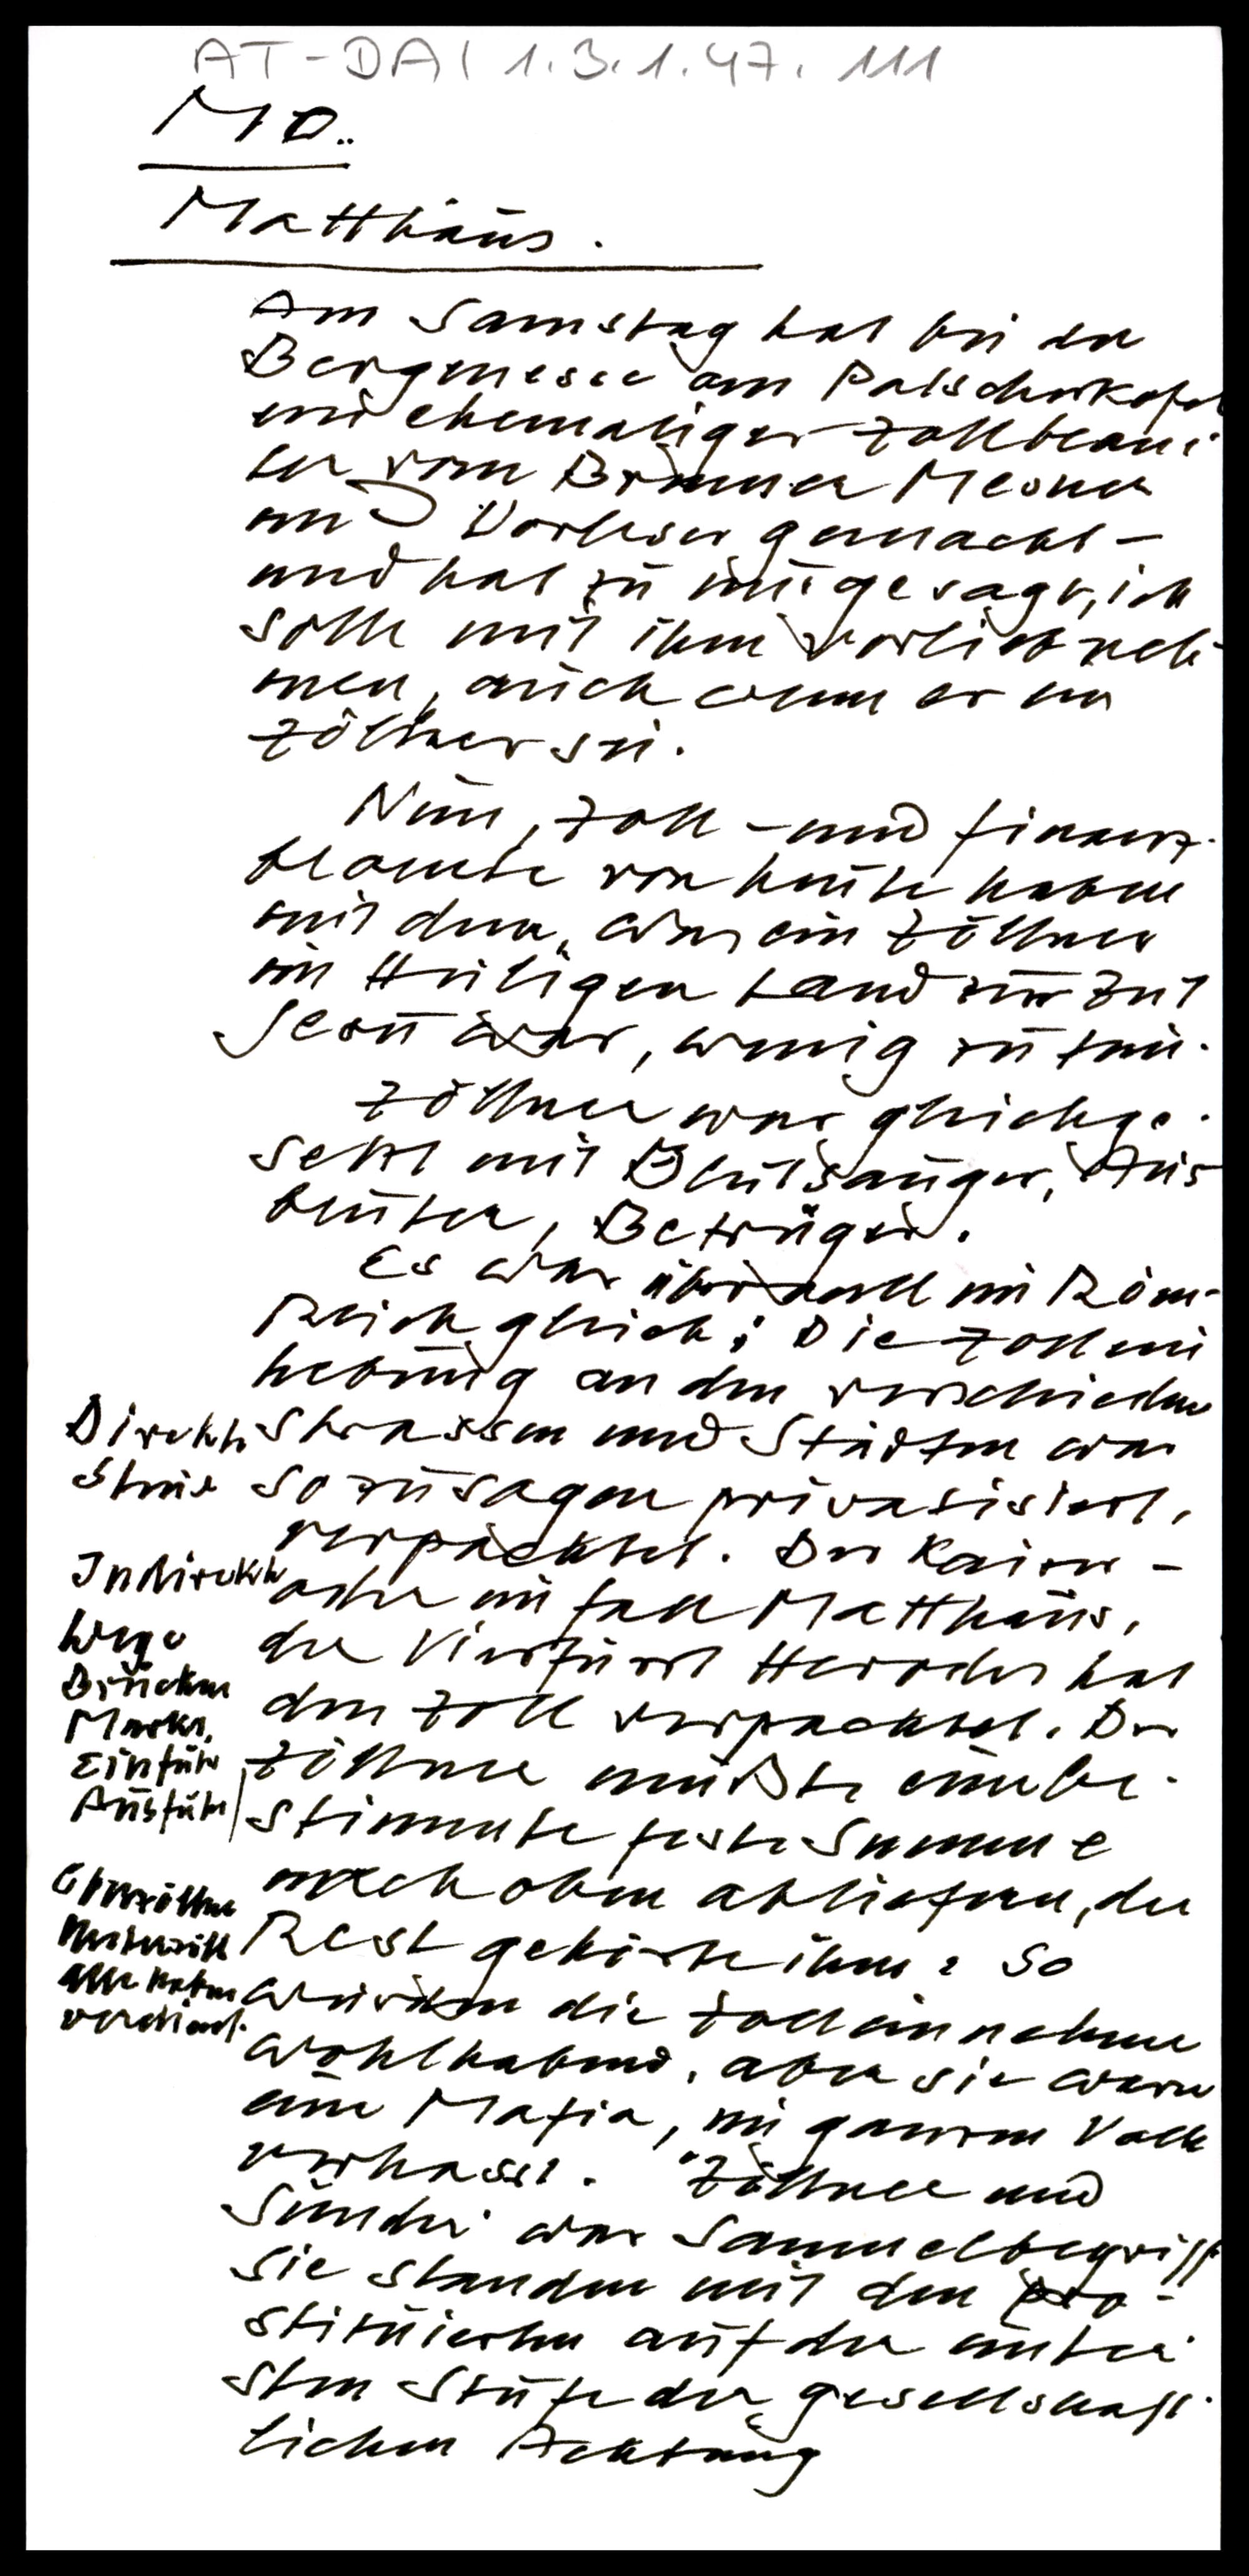 AT-DAI 1.3.1.47.111
MO..
Matthäus.
Am Samstag hat bei der
Bergmesse am Patscherkofel
ein ehemaliger Zollbeam-
ter vom Brenner Mesner
und Vorleser gemacht –
und hat zu mir gesagt, ich
solle mit ihm vorlieb neh-
men, auch wenn er ein
Zöllner sei.
Nun, Zoll- und Finanz-
beamte von heute haben
mit dem, was ein Zöllner
im Heiligen Land zur Zeit
Jesu war, wenig zu tun.
Zöllner war gleichge-
setzt mit Blutsauger, Aus-
beuter, Betrüger.
Es war überall im Röm.
Reich gleich: Die Zollein
hebung an den verschieden
Strassen und Städten war
sozusagen privatisiert,
verpachtet. Der Kaiser –
oder im Fall Matthäus,
der Vierfürst Herodes hat
den Zoll verpachtet. Der
Zöllner mußte eine be-
stimmte feste Summe
nach oben abliefern, der
Rest gehörte ihm: So
wurden die Zolleinnehmer
wohlhabend, aber sie waren
eine Mafia, im ganzen Volk
verhasst. "Zöllner und
Sünder" war Sammelbegriff
Sie standen mit den Pro-
stituierten auf der unter-
sten Stufe der gesellschaft-
lichen Achtung
Direkte
Steuer
Indirekte
Wege
Brücken
Markt,
Einfuhr
Ausfuhr
Oberzöllner
alle haben
verdient.